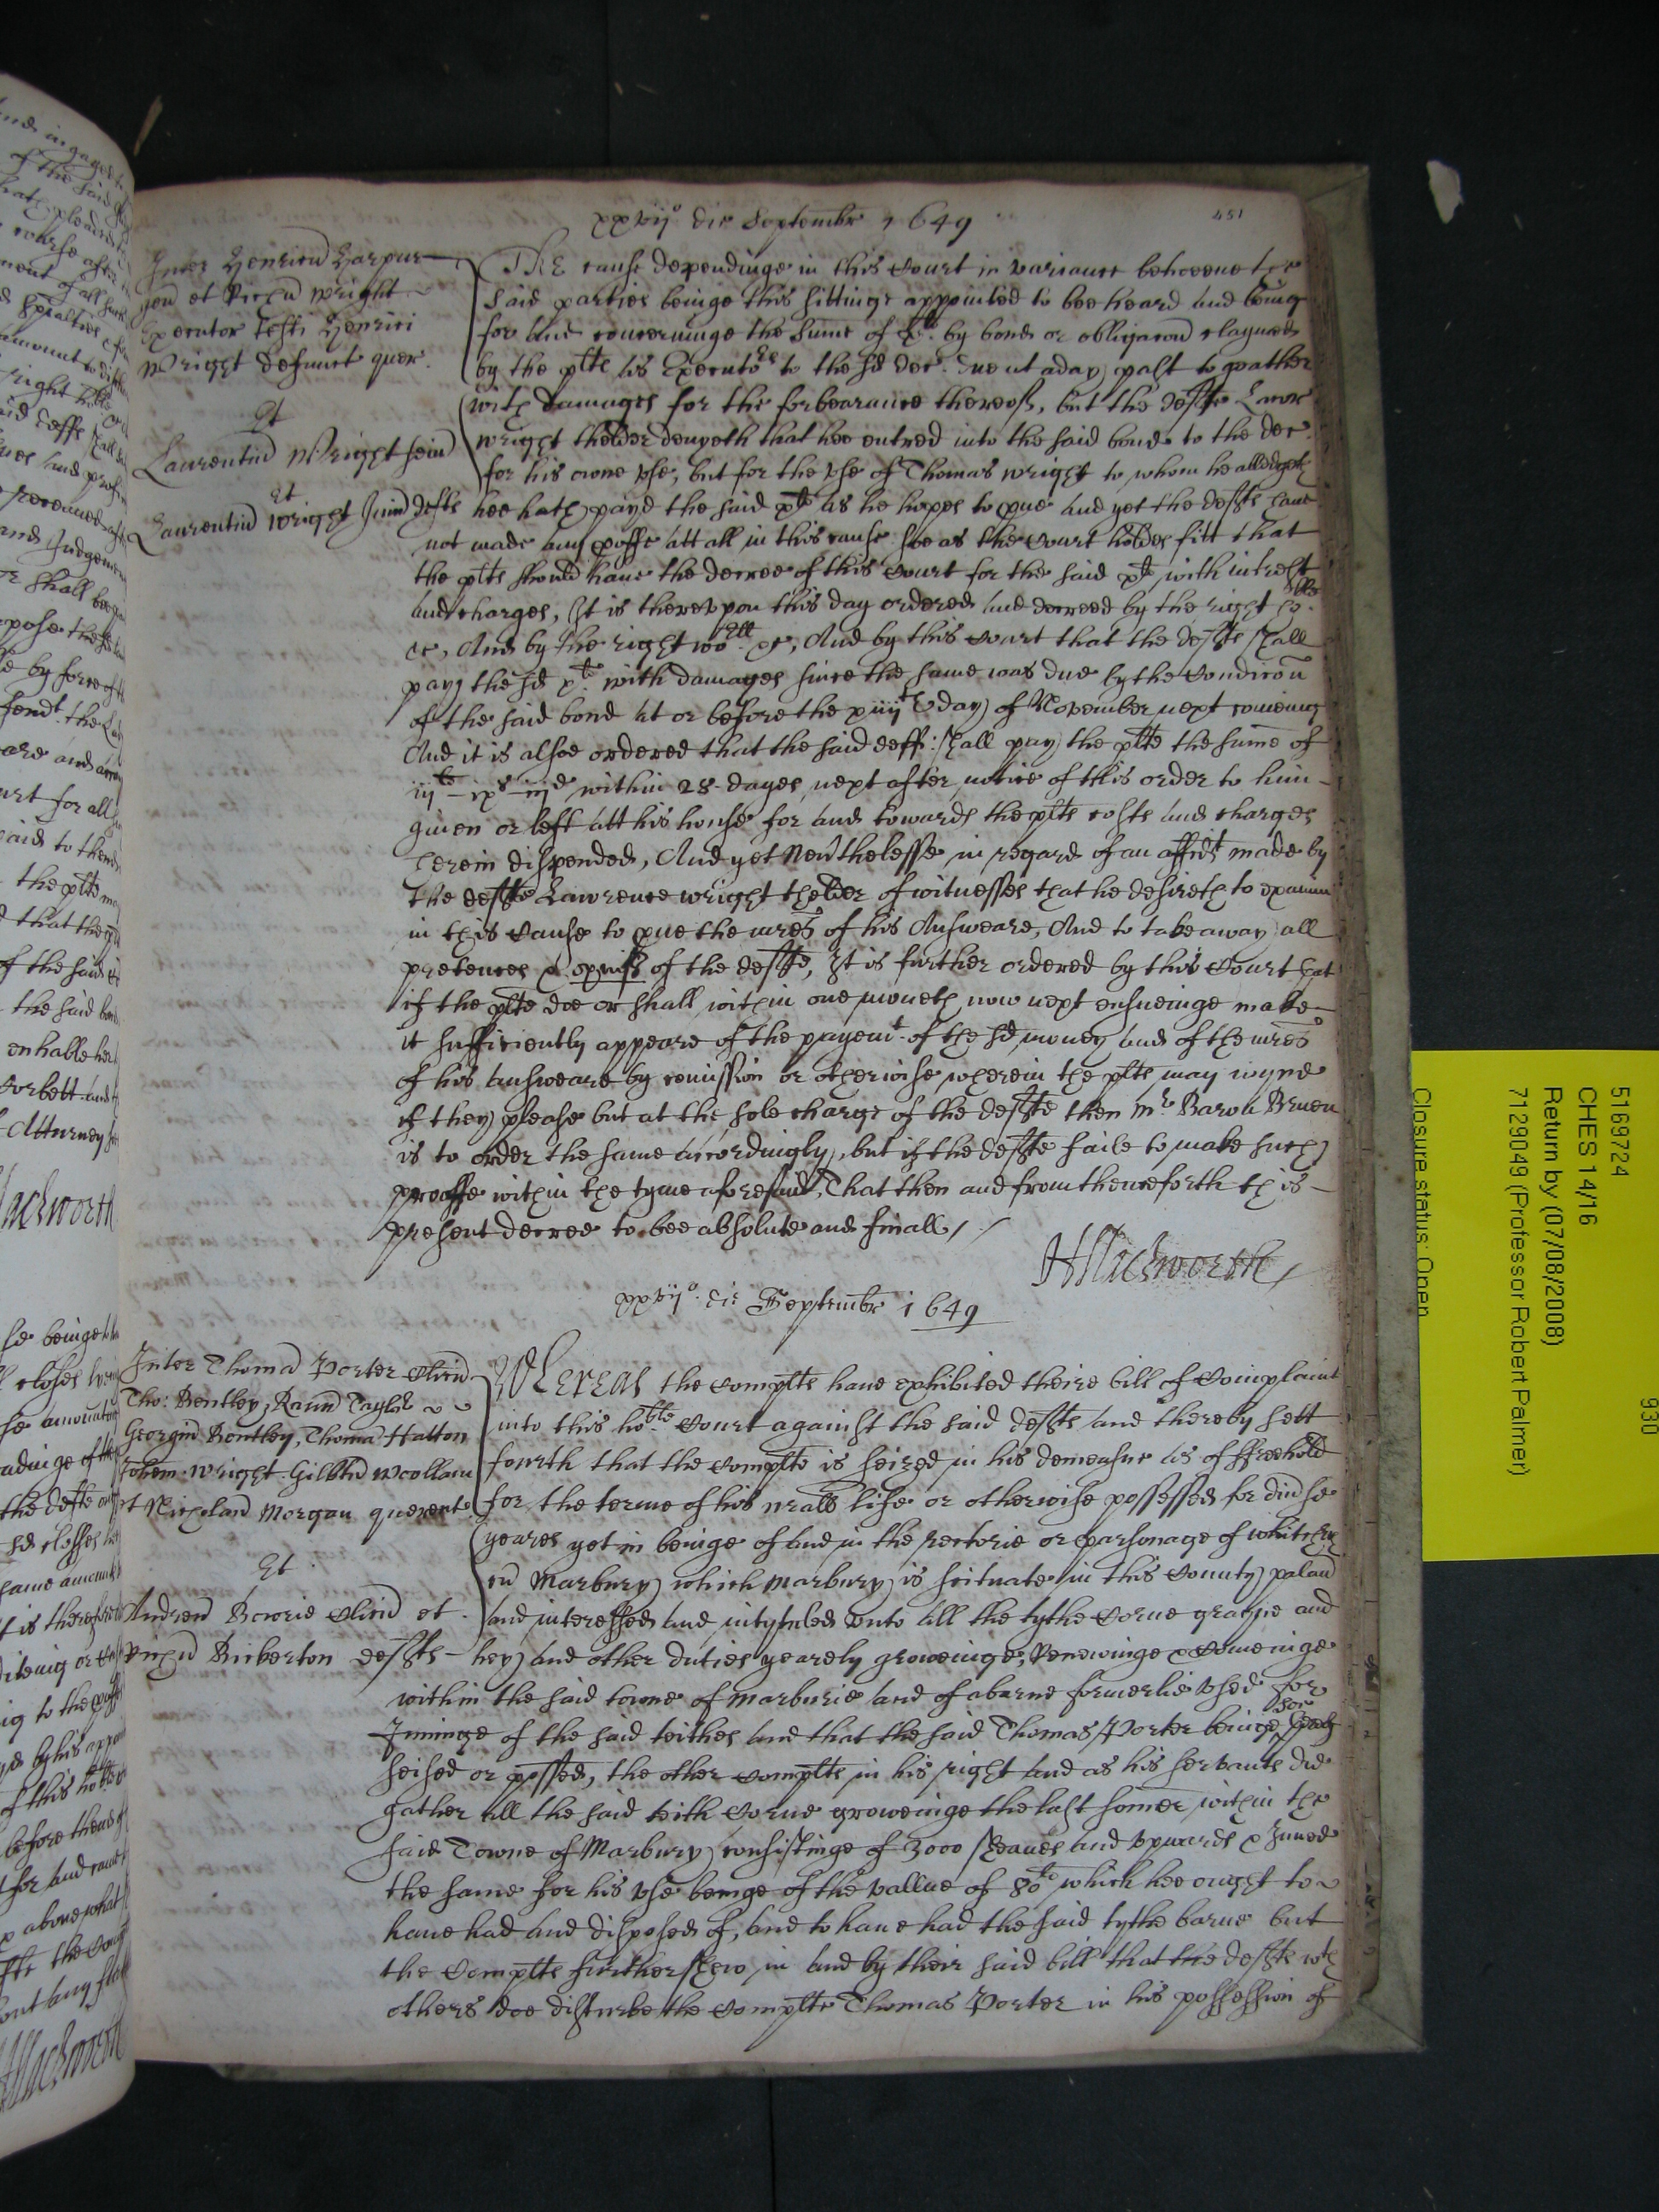 xxvijo die Septembr 1649
451
Inter Henricu Harpur
gen et Ricu Wright
Executor Testi Henrici
Wright defunct quer.
Et
Laurentiu Wright sein
Et
Laurentiu Wright Jun defts
The cause dependinge in this Court in variance betweene the
said parties beinge this sittinge appointed to bee heard and being
for and concerninge the sume of xli by bond or obligacon claymed
by the plts as Executors to the sd dec. due at a day past together
with damages for the forbearance thereof, but the deft Lawr
Wright thelder denyeth that hee entred into the said bond to the dec.
for his owne use, but for the use of Thomas Wright to whom he alledgeth
hee hath payd the said xli as he hopes to pve and yet the defts have
not made any proffe att all in this cause soe as the Court holdes fitt that
the plts should have the decree of this Court for the said xli with intrest
and charges, It is thereupon this day ordered and decreed by the right ho:ble
&c, And by the right woll &c, And by this Court that the defts shall
pay the sd xli with damages since the same was due by the Condicon
of the said bond at or before the xiiijth day of November next comeing
And it is alsoe ordered that the said deff: shall pay the plts the sume of
iijli - ixs - iijd within 28 dayes next after notice of this order to him
given or left att his house for and towards the plts costs and charges
herein dispended, And yet nevthelesse in regard of an affidt made by
the deft Lawrence Wright thelder of witnesses that he desireth to examin
in this Cause to pve the mres of his Answeare, And to take away all
pretences of the deft, It is further ordered by this Court that
if the plts doe or shall within one moneth now next ensueinge make
it sufficiently appeare of the payemt of the sd money and of the mres
of his answeare by comission or otherwise wherein the plts may ioyne
if they please but at the sole charge of the deft then mr Baron Bruen
is to order the same accordingly, but if the deft faile to make such
prooffe within the tyme aforesaid, That then and from thenceforth this
present decree to bee absolute and finall
HMackworth
xxvijo die Septembr 1649
Inter Thoma Porter Clicu
Tho: Bentley, Rann Taylor
Georgiu Bentley, Thoma Hatton
Johem Wright Gilbtu Woollam
et Nicholau Morgan querent.
Et
Andreu Bowrie Clicu et
Ricu Bickerton defts
Whereas the Complts have exhibited theire bill of Complaint
into this ho:ble Court against the said defts and thereby sett
fourth that the Complt is seized in his demeasne as of ffreehold
for the terme of his nrall life or otherwise possessed for divse
yeares yet in beinge of and in the rectorie or parsonage of Whitchurch
cu Marbury which Marbury is scituate in this County palan
and interessed and intytuled unto all the tythe Corne grayne and
hey and other duties yearely groweinge, Renewinge & Comeinge
within the said towne of Marburie and of a barne formerlie used for
Ininge of the said teithes and that the said Thomas Porter beinge soe
seised or possed, the other Complts in his right and as his servants did
gather all the said teith Corne groweinge the last somer within the
said Towne of Marbury consistinge of 3000 sheaves and upwards & Inned
the same for his use beinge of the vallue of 80li which hee ought to
have had and disposed of, and to have had the said tythe barne but
the Complts further shew in and by their said bill that the defts wth
others doe disturbe the Complt Thomas Porter in his possession of
5169724
CHES 14/16
Return by (07/08/2008)
7129049 (Professor Robert Palmer)
Closure status: Open
930